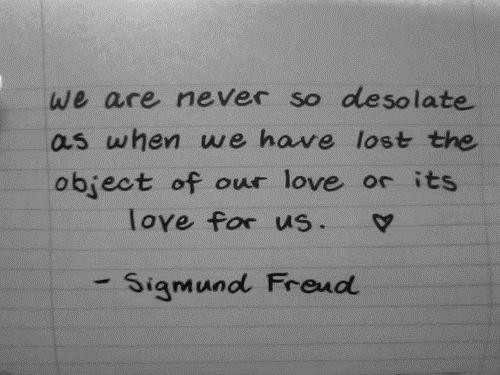 we are never so desolate
as when we have lost the
object of our love or its
love for us. ♡
- Sigmund Freud